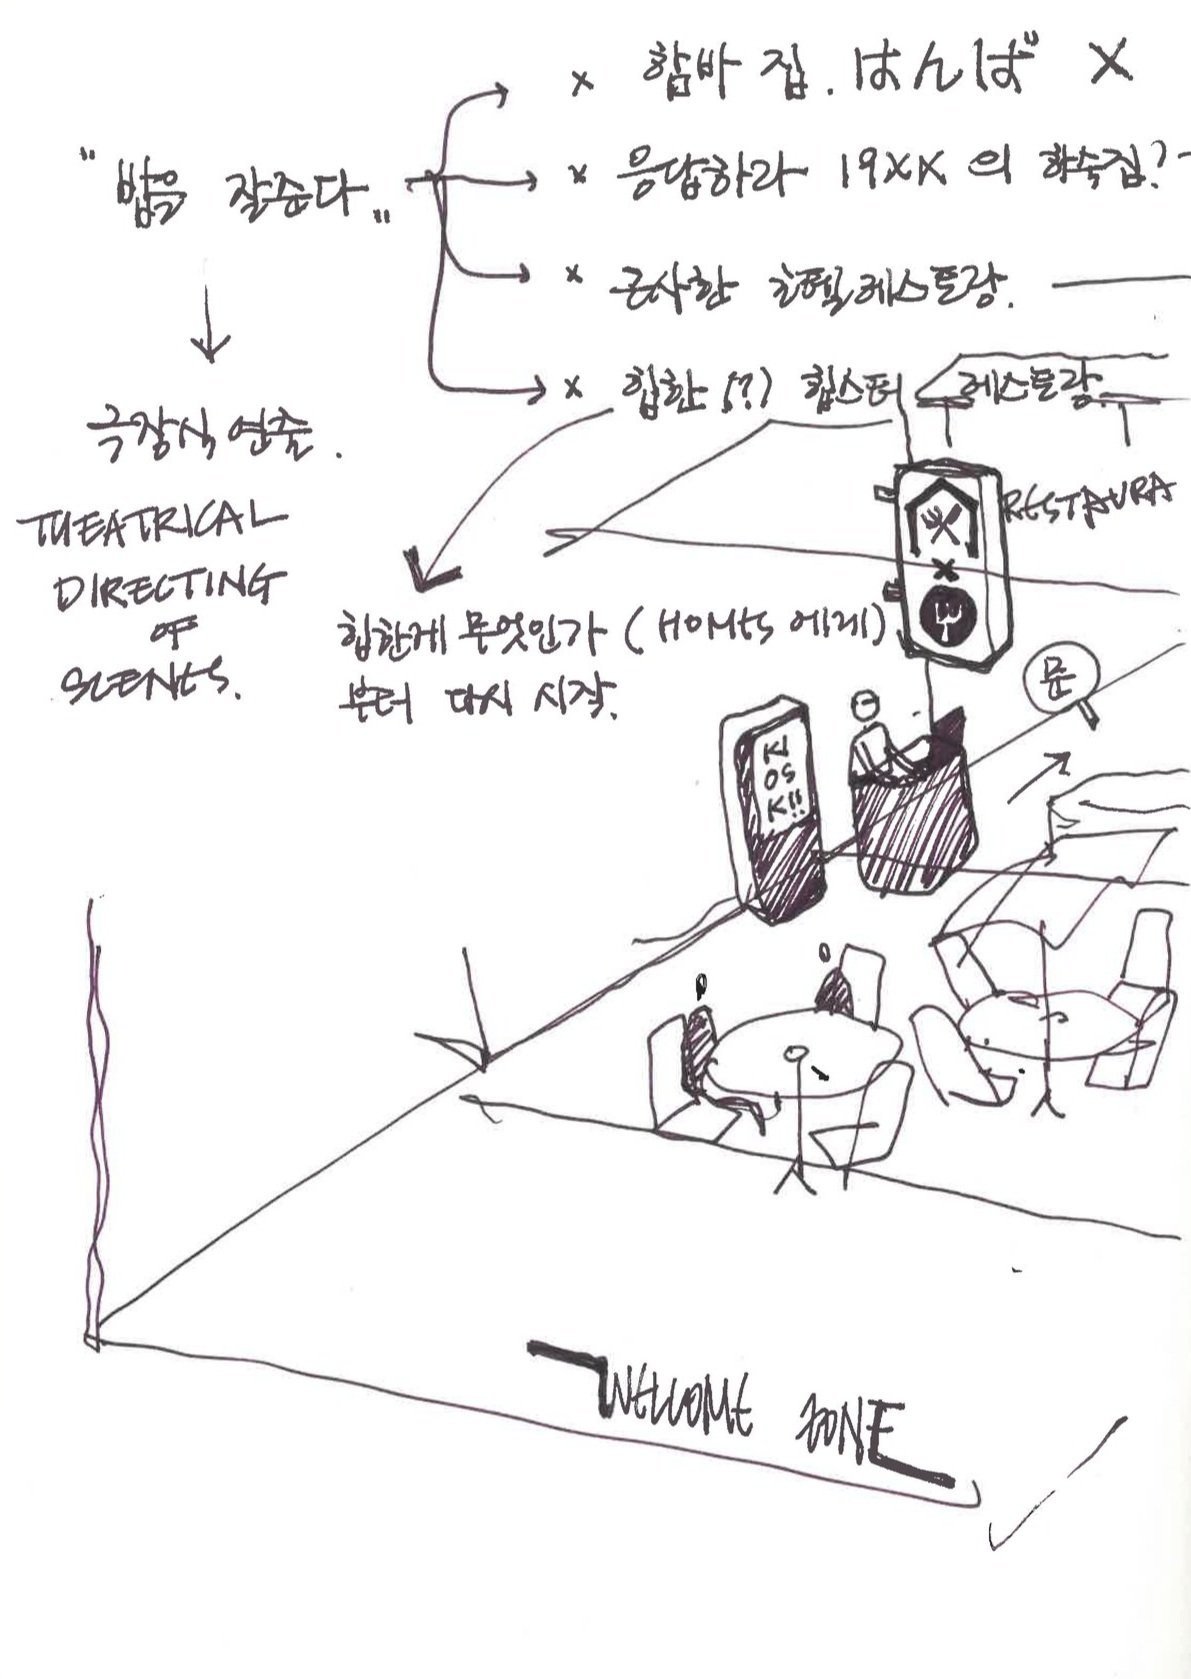 × 함바 집. はんば" ×
"밥을 잘준다"
× 응답하라 19XX 의 하숙집?
× 근사한 호텔레스토랑.
× 힙한 (?) 힙스터 레스토랑.
극장식 연출.
THEATRICAL
DIRECTING
OF
SCENES.
RESTAURA
힙한게 무엇인가 (HOMES 에게)
부터 다시 시작.
문
KI
OS
K!!
WELCOME ZONE